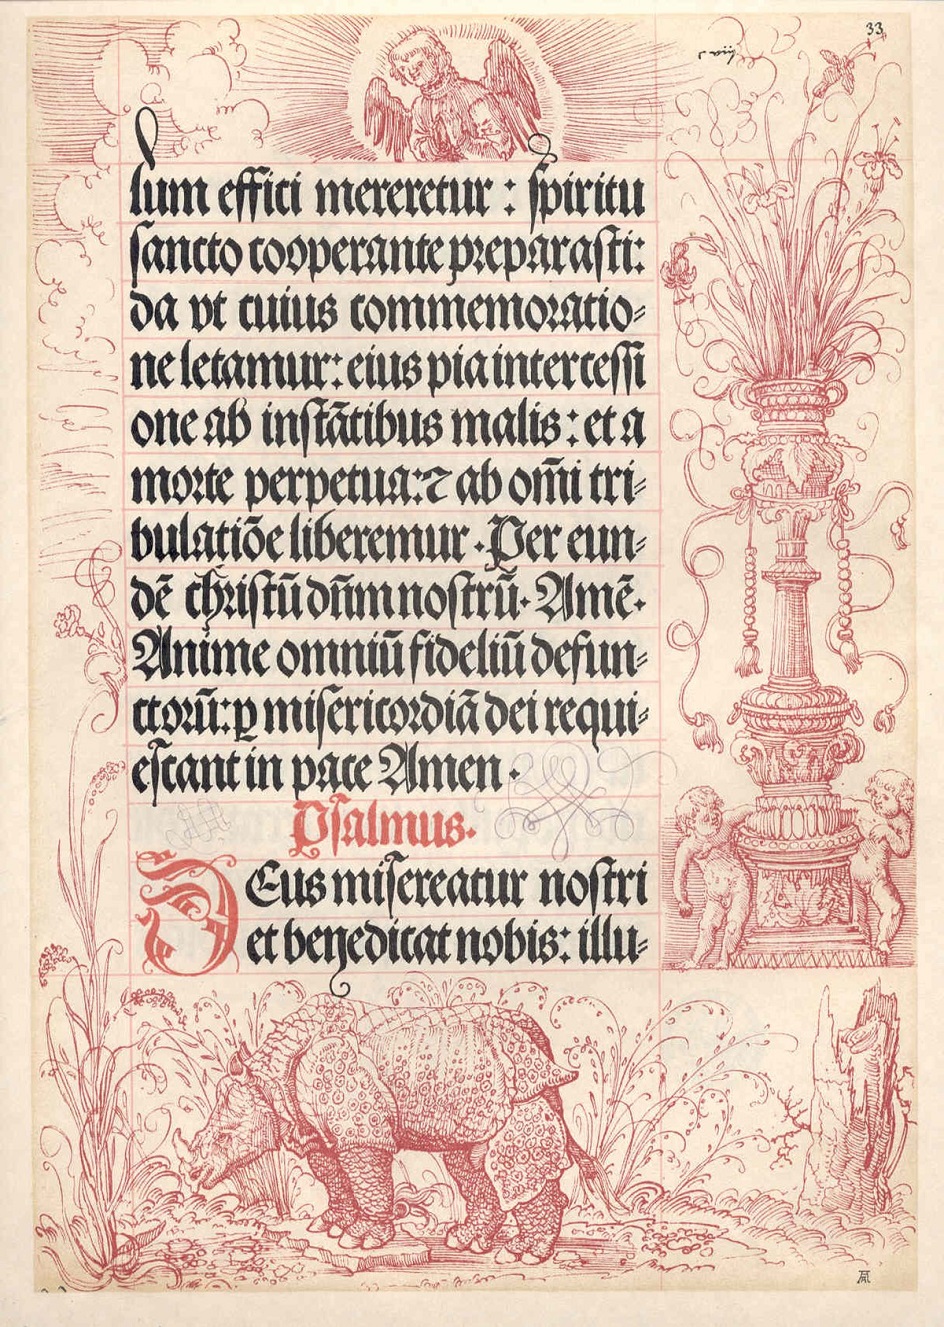 33
lum effici mereretur : spiritu
sancto cooperante preparasti:
da vt cuius commemoratio-
ne letamur: eius pia intercessi
one ab instātibus malis: et a
morte perpetua: ⁊ ab om̄i tri-
bulatiōe liberemur. Per eun-
dē christū dn̄m nostrū. Amē.
Anime omniū fideliū defun-
ctorū: ꝑ misericordiā dei requi-
escant in pace Amen.
Psalmus.
DEus misereatur nostri
et benedicat nobis: illu-